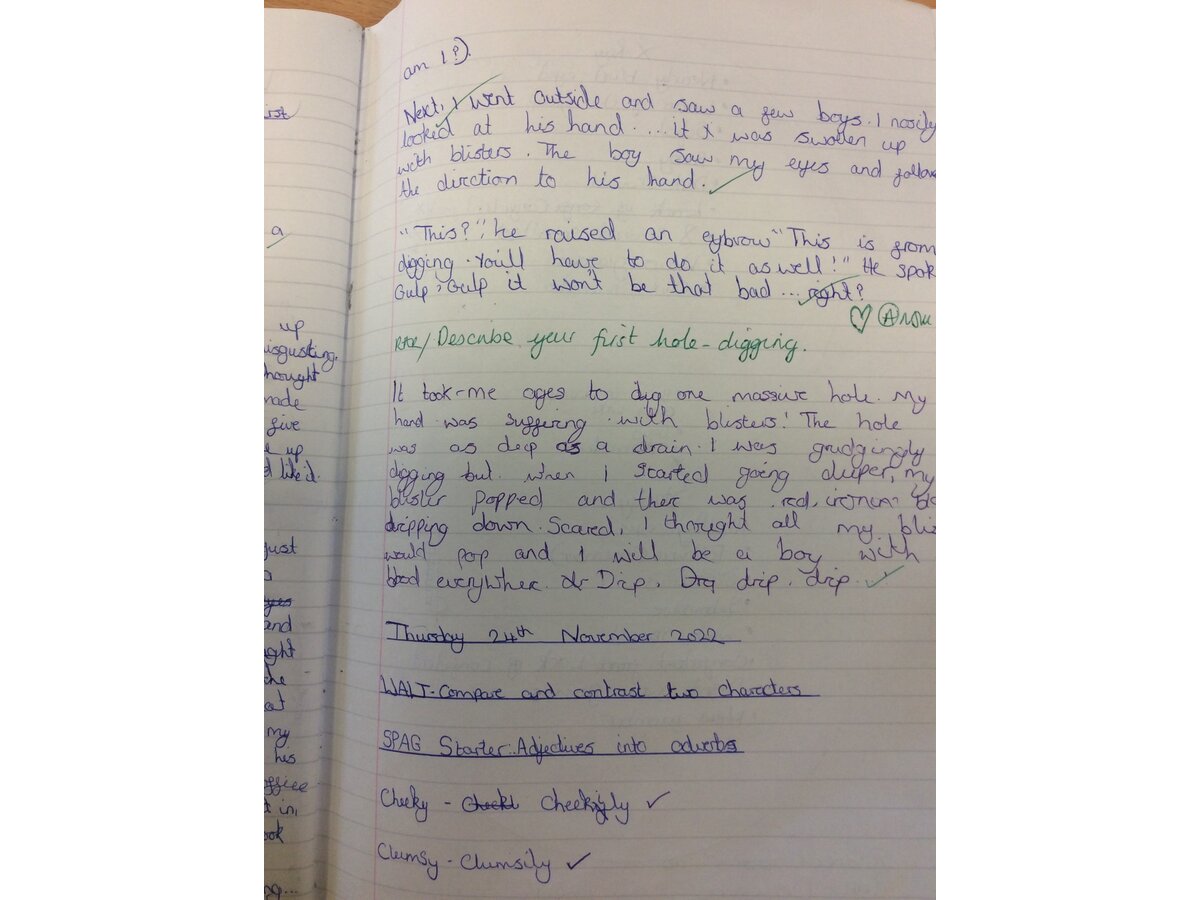 am I?).
Next, I went outside and saw a few boys. I nosily
looked at his hand.... it was swollen up
with blisters. The boy saw my eyes and follow
the direction to his hand.
"This?", he raised an eybrow "This is from
digging. You'll have to do it as well!" He spok
Gulp, Gulp it won't be that bad... right?
Describe your first hole-digging.
It took me ages to dig one massive hole. My
hand was suffering with blisters! The hole
was as deep as a drain. I was grudgingly
digging but when I started going deeper, my
blister popped and ther was red,
dripping down. Scared, I throught all my blis
would pop and I will be a boy with
blood everywher. Drip, drip, drip.
Thursday 24th November 2022
WALT-Compare and contrast two characters
SPAG Starter: Adjectives into adverbs
Cheeky - Cheekl Cheekily
Clumsy - Clumsily
a
up
isgusting.
hought
made
give
e up
d like it.
just
and
ght
the
at
my
his
office
t in,
ook